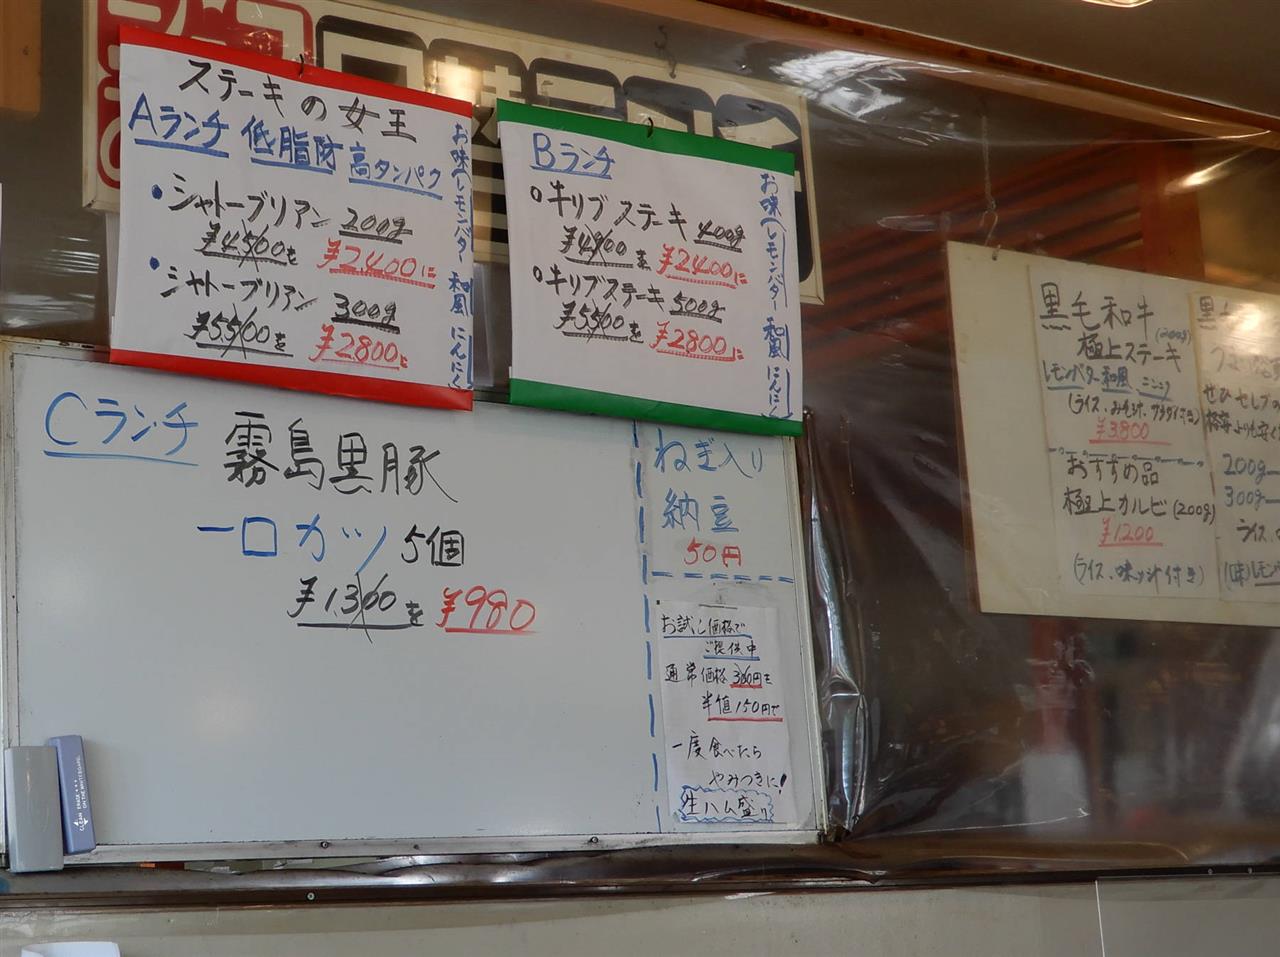 ステーキの女王
Aランチ 低脂肪 高タンパク
・シャトーブリアン 200g
¥4500を ¥2,400に
・シャトーブリアン 300g
¥5500を ¥2800に
お味(レモンバター 和風 にんにく)
Bランチ
牛リブステーキ 400g
¥4900を ¥2400に
牛リブステーキ 500g
¥5500を ¥2800に
お味(レモンバター 和風 にんにく)
Cランチ 霧島黒豚
一口カツ 5個
¥1300を ¥980
ねぎ入り
納豆
50円
お試し価格で
ご提供中
通常価格300円を
半値150円で
一度食べたら
やみつきに!
生ハム盛り
黒毛和牛
(200g)
極上ステーキ
レモンバター 和風 ニンニク
(ライス、みそ汁、サラダ付き)
¥3,800
おすすめ品
極上カルビ(200g)
¥1,200
(ライス、味ソ汁付き)
ぜひセレブの
200g
300g
ライス、
(味)レモン